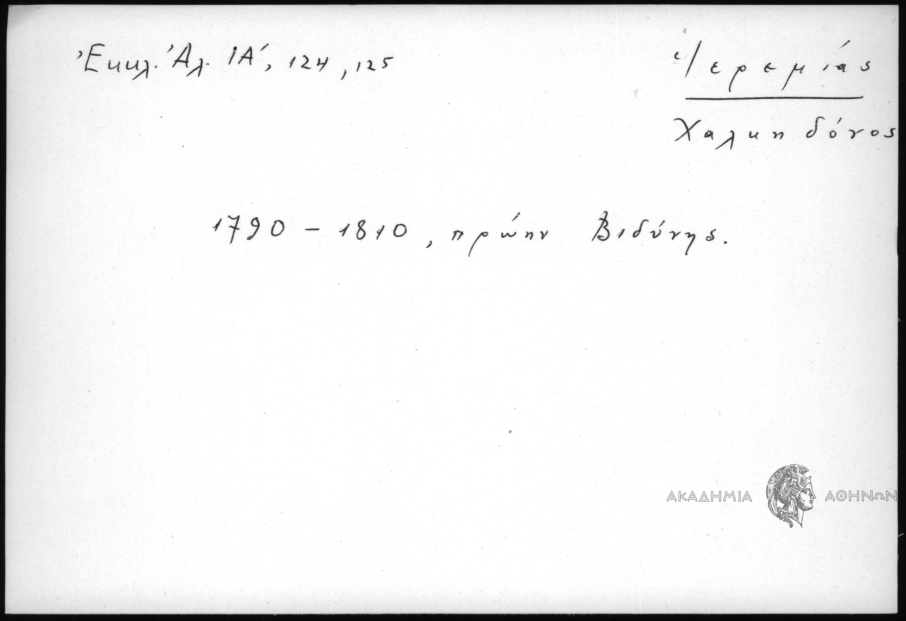 Ἐκκλ. Ἀλ. ΙΑ', 124, 125
Ἱερεμίας
Χαλκηδόνος
1790 - 1810, πρώην Βιδύνης.
ΑΚΑΔΗΜΙΑ ΑΘΗΝΩΝ